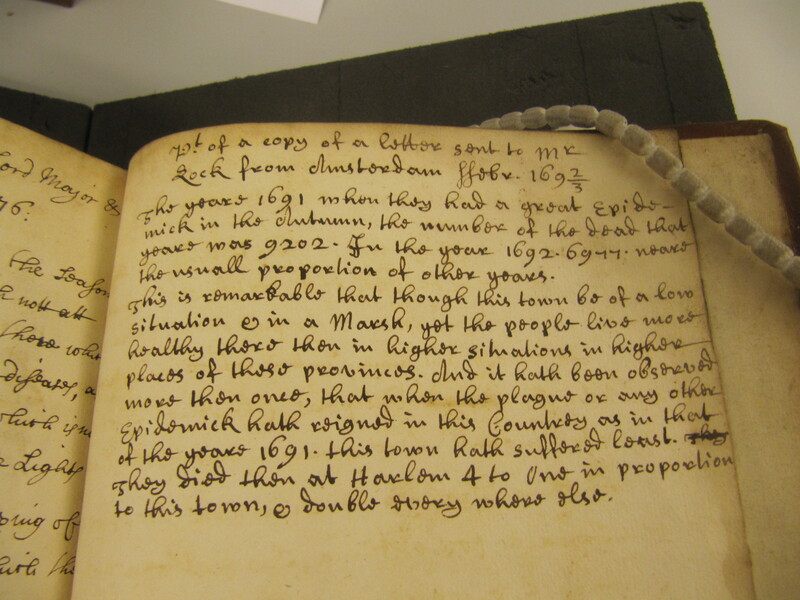 ord Major &
76:
the Season
h nott att
there whi
diseases, a
which is
Light
ping of
which the
Pt. of a copy of a letter sent to Mr
Lock from Amsterdam ffebr. 1692/3
The yeare 1691 when they had a great Epide-
mick in the Autumn, the number of the dead that
yeare was 9202. In the year 1692. 6977. neare
the usuall proportion of other years.
This is remarkable that though this town be of a low
situation & in a Marsh, yet the people live more
healthy there then in higher situations in higher
places of these provinces. And it hath been observed
more then once, that when the plague or any other
Epidemick hath reigned in this Countrey as in that
of the yeare 1691. this town hath suffered least. They
They died then at Harlem 4 to One in proportion
to this town, & double every where else.